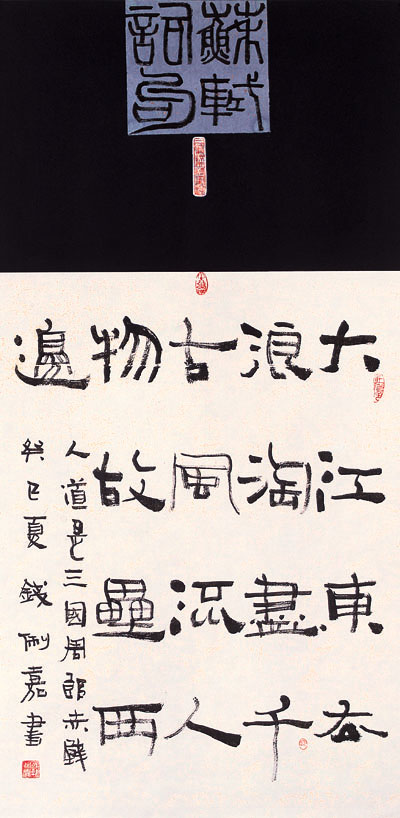 蘇軾
詞句
大江東去
浪淘盡千
古風流人
物故壘西
邊
人道是三國周郎赤壁
癸巳夏 錢 嘉書